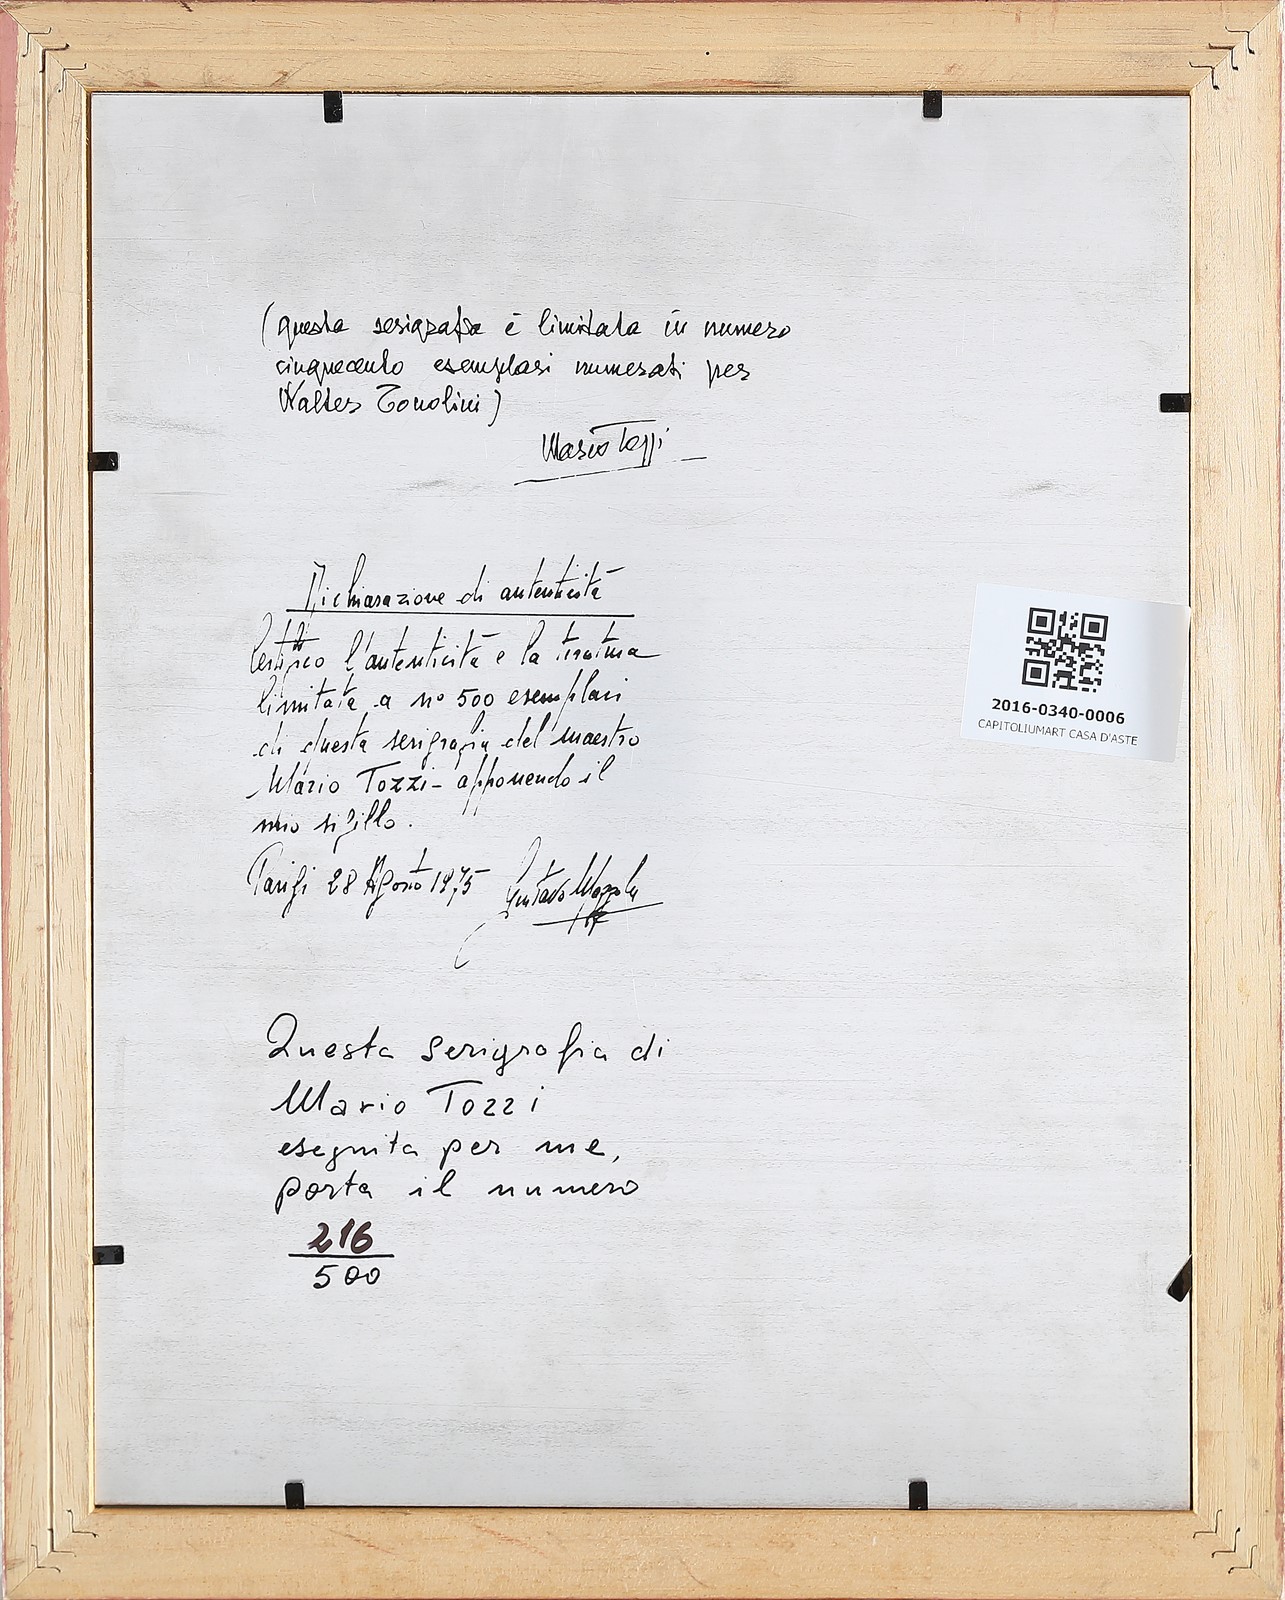 (questa serigrafia è limitata in numero
cinquecento esemplari numerati per
Walter Tonolini)
Mario Tozzi
Dichiarazione di autenticità
Certifico l'autenticità e la tiratura
limitata a n° 500 esemplari
di questa serigrafia del maestro
Mário Tozzi - apponendo il
mio sigillo.
Parigi 28 Agosto 1975 Gustavo
Questa serigrafia di
Mario Tozzi
eseguita per me,
porta il numero
216
500
2016-0340-0006
CAPITOLIUMART CASA D'ASTE